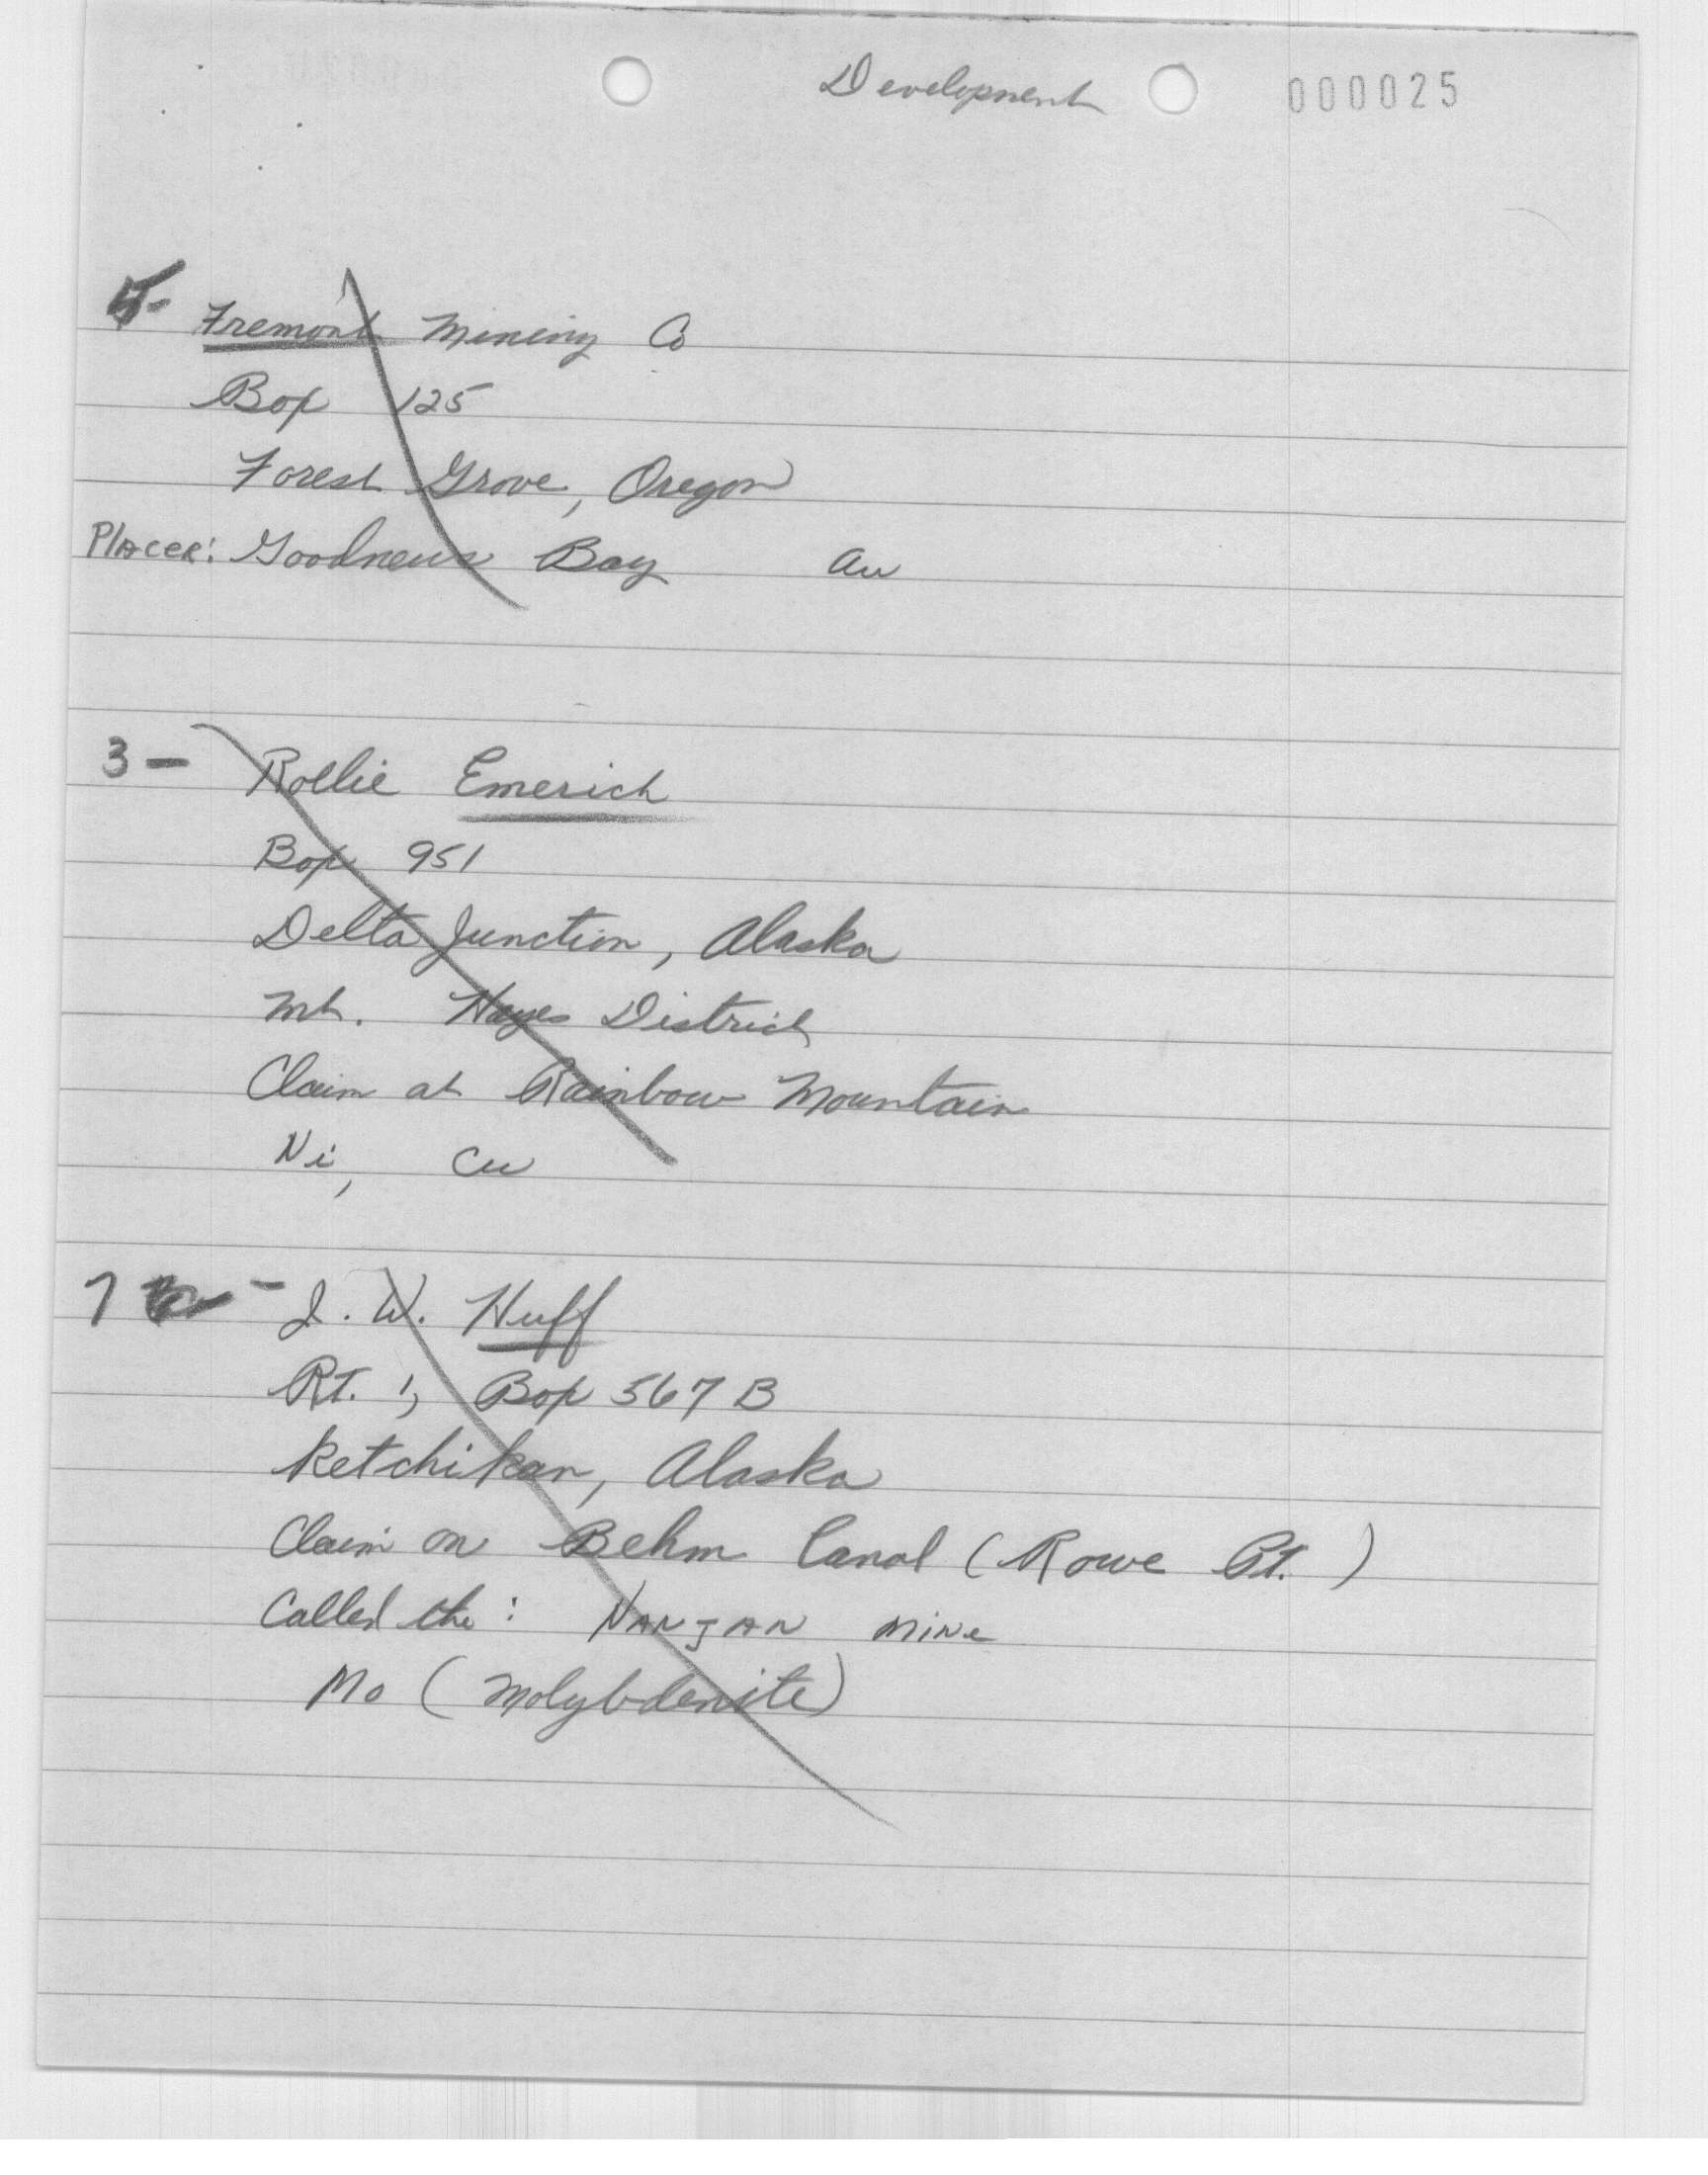 Development 000025
Fremont Mining Co
Box 125
Forest Grove, Oregon
Placer: Goodnews Bay Au
3 - Rollie Emerich
Box 951
Delta Junction, Alaska
Mt. Hayes District
Claim at Rainbow Mountain
Ni, Cu
7 - J. W. Huff
Rt. 1, Box 567 B
Ketchikan, Alaska
Claim on Behm Canal (Rowe Pt.)
Called the: NANJAN MINE
Mo (Molybdenite)